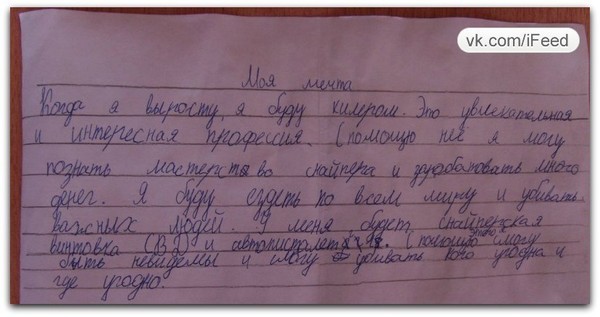 vk.com/iFeed
Моя мечта
Когда я вырасту, я буду килером. Это увлекательная
и интересная профессия. С помощю неё я могу
познать мастерство снайпера и зарабатовать много
денег. Я буду ездеть по всем миру и убивать
важных людей. У меня будет снайперская
винтовка (ВД) и автопистолет С помощю этого смогу
быть невидемы и смогу убивать кого угодна и
где угодно.